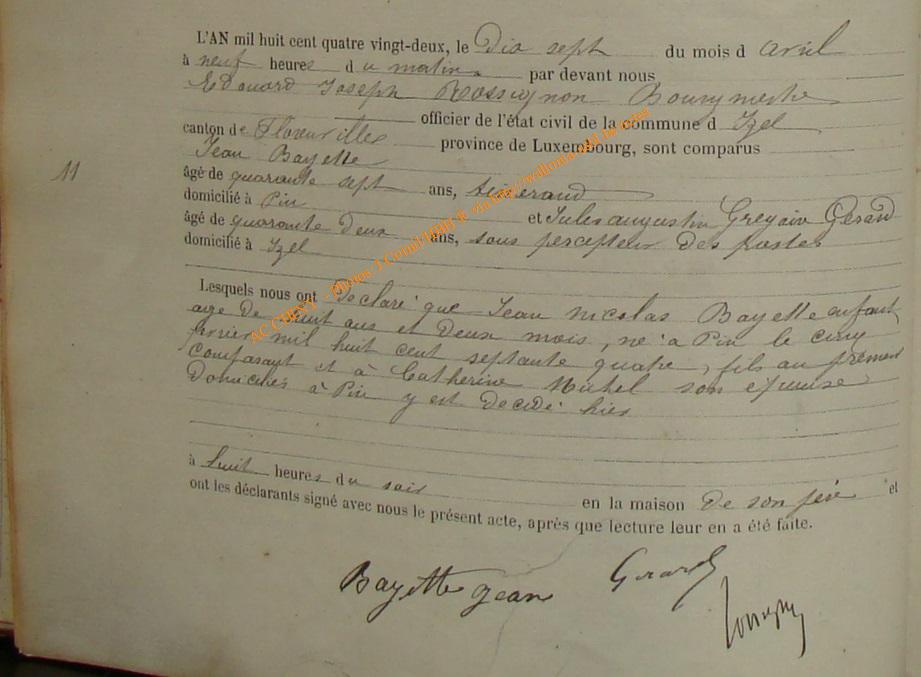 L'AN mil huit cent quatre vingt-deux, le Dix sept du mois d avril
à neuf heures du matin par devant nous
Edouard Joseph Rossignon Bourgmestre
officier de l'état civil de la commune d Izel
canton de Florenville province de Luxembourg, sont comparus
Jean Bayette
11
âgé de quarante sept ans, tisserand
domicilié à Pin et Jules augustin Gregoire Gerard
âgé de quarante Deux ans, sous percepteur Des postes
domicilié à Izel
Lesquels nous ont Declaré que Jean nicolas Bayette enfant
age De huit ans et Deux mois, né à Pin le cinq
fevrier mil huit cent septante quatre, fils au premier
comparant et à Catherine Michel son epouse
Domiciliés à Pin y est decidé hier
à huit heures du soir en la maison De son père et
ont les déclarants signé avec nous le présent acte, après que lecture leur en a été faite.
Bayette jean Gerard